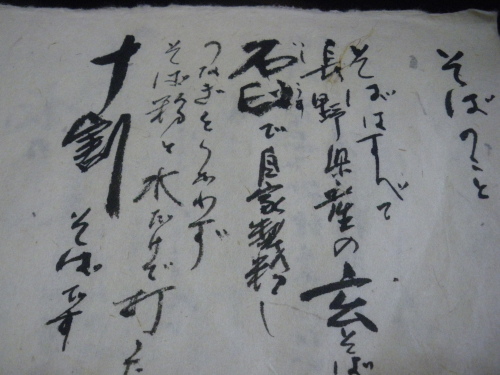 そばのこと
そばはすべて
長野県産の玄そば
石臼で自家製粉し
つなぎをつかわず
そば粉と水だけで打った
十割そばです